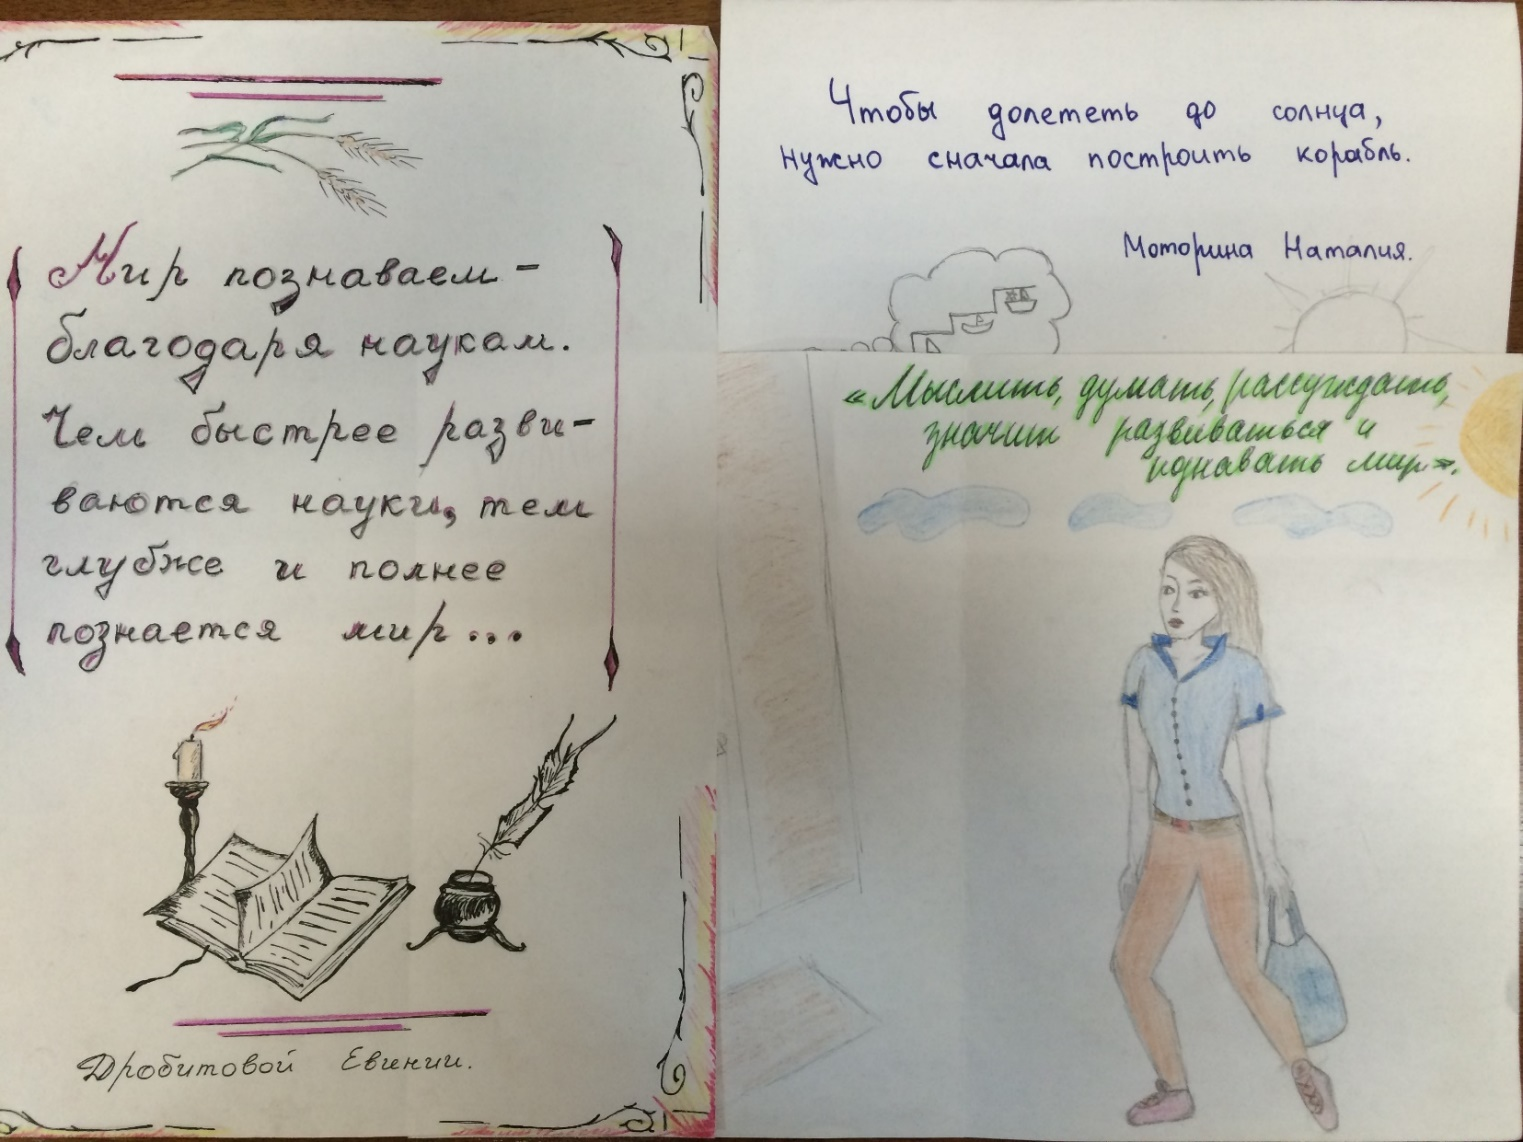 Мир познаваем -
благодаря наукам.
Чем быстрее разви-
ваются науки, тем
глубже и полнее
познается мир...
Дробитовой Евгинии.
Чтобы долететь до солнца,
нужно сначала построить корабль.
Моторина Наталия.
«Мыслить, думать, рассуждать,
значит развиваться и
познавать мир».